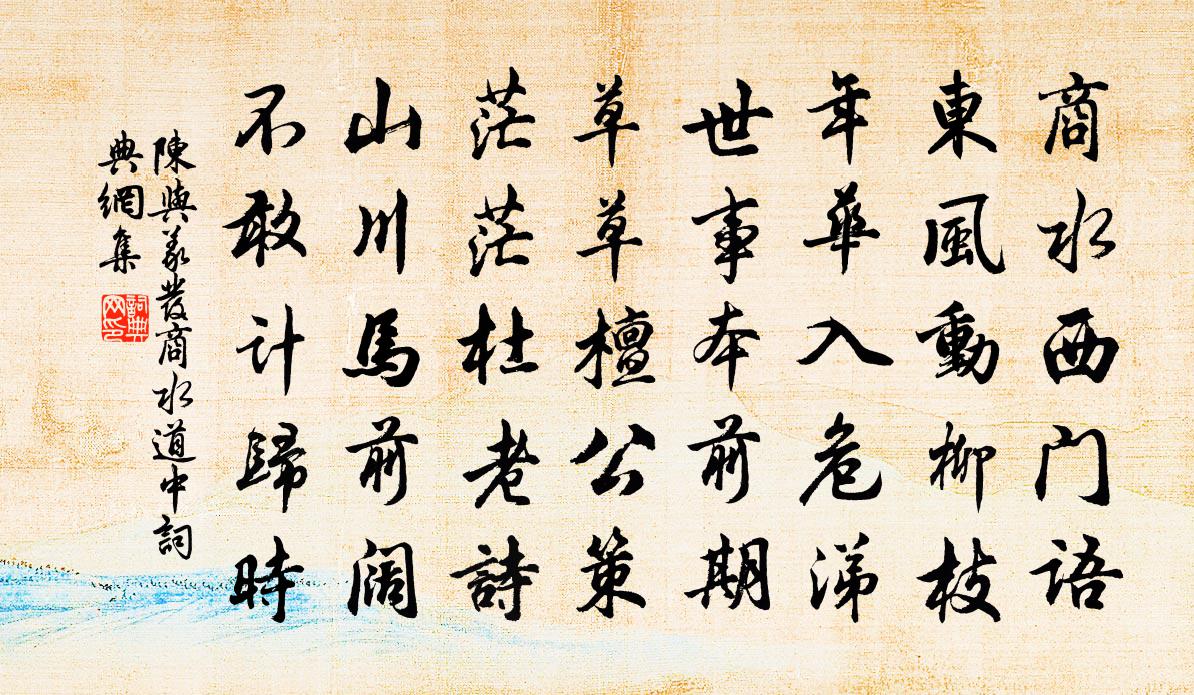 商水西门语
東風動柳枝
年華入危涕
世事本前期
草草檀公策
茫茫杜老詩
山川馬前闊
不敢计歸時
陳與義發商水道中詞
典網集
詞典
网印